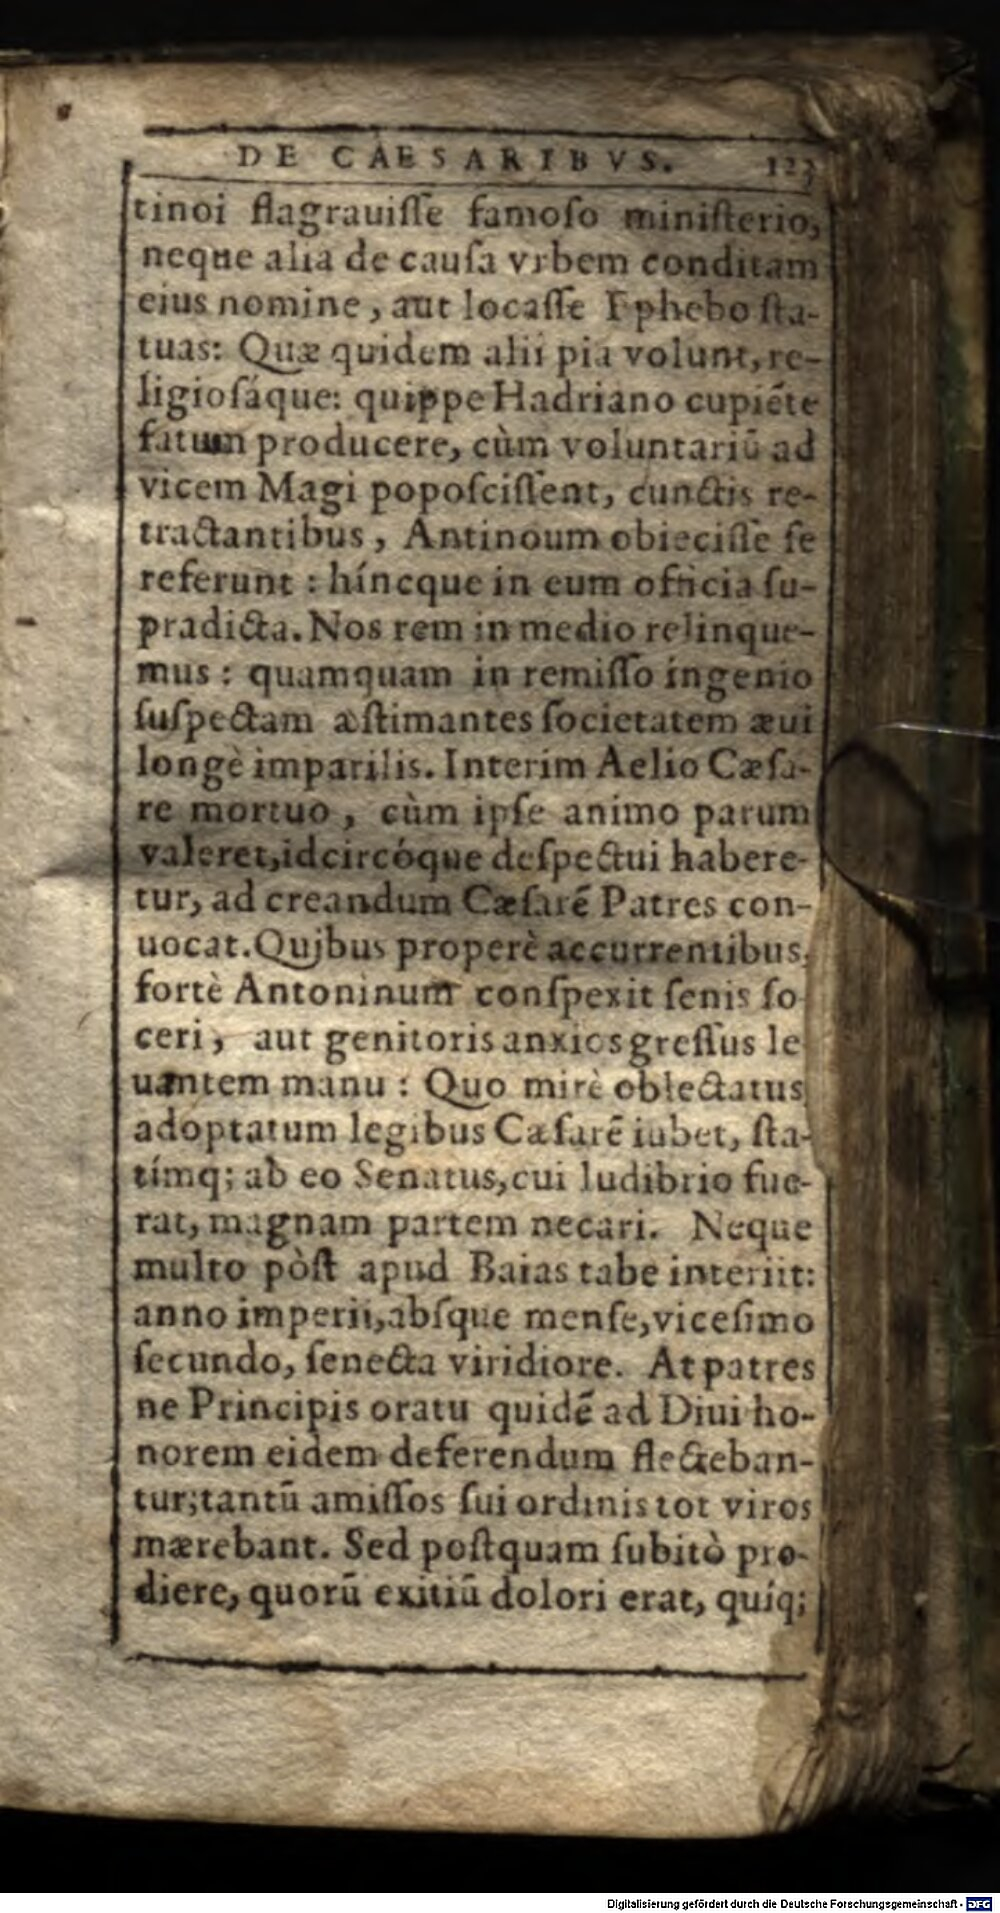 DE CAESARIBVS. 123
tinoi flagrauiſſe famoſo miniſterio,
neque alia de cauſa vrbem conditam
eius nomine, aut locaſſe Ephebo ſta-
tuas: Quæ quidem alii pia volunt, re-
ligioſáque: quippe Hadriano cupiẽte
fatum producere, cùm voluntariũ ad
vicem Magi popoſciſſent, cunctis re-
tractantibus, Antinoum obieciſſe ſe
referunt: híncque in eum officia ſu-
pradicta. Nos rem in medio relinque-
mus: quamquam in remiſſo ingenio
ſuſpectam æſtimantes ſocietatem æui
longè imparilis. Interim Aelio Cæſa-
re mortuo, cùm ipſe animo parum
valeret, idcircóque deſpectui habere-
tur, ad creandum Cæſarẽ Patres con-
uocat. Quibus properè accurrentibus,
fortè Antoninum conſpexit ſenis ſo
ceri, aut genitoris anxios greſſus le
uantem manu: Quo mirè oblectatus
adoptatum legibus Cæſarẽ iubet, ſta-
tímq; ab eo Senatus, cui ludibrio fue-
rat, magnam partem necari. Neque
multo pòſt apud Baias tabe interiit:
anno imperii, abſque menſe, viceſimo
ſecundo, ſenecta viridiore. At patres
ne Principis oratu quidẽ ad Diui ho-
norem eidem deferendum flecteban-
tur; tantũ amiſſos ſui ordinis tot viros
mærebant. Sed poſtquam ſubitò pro-
diere, quorũ exitiũ dolori erat, quíq;
Digitalisierung gefördert durch die Deutsche Forschungsgemeinschaft - DFG